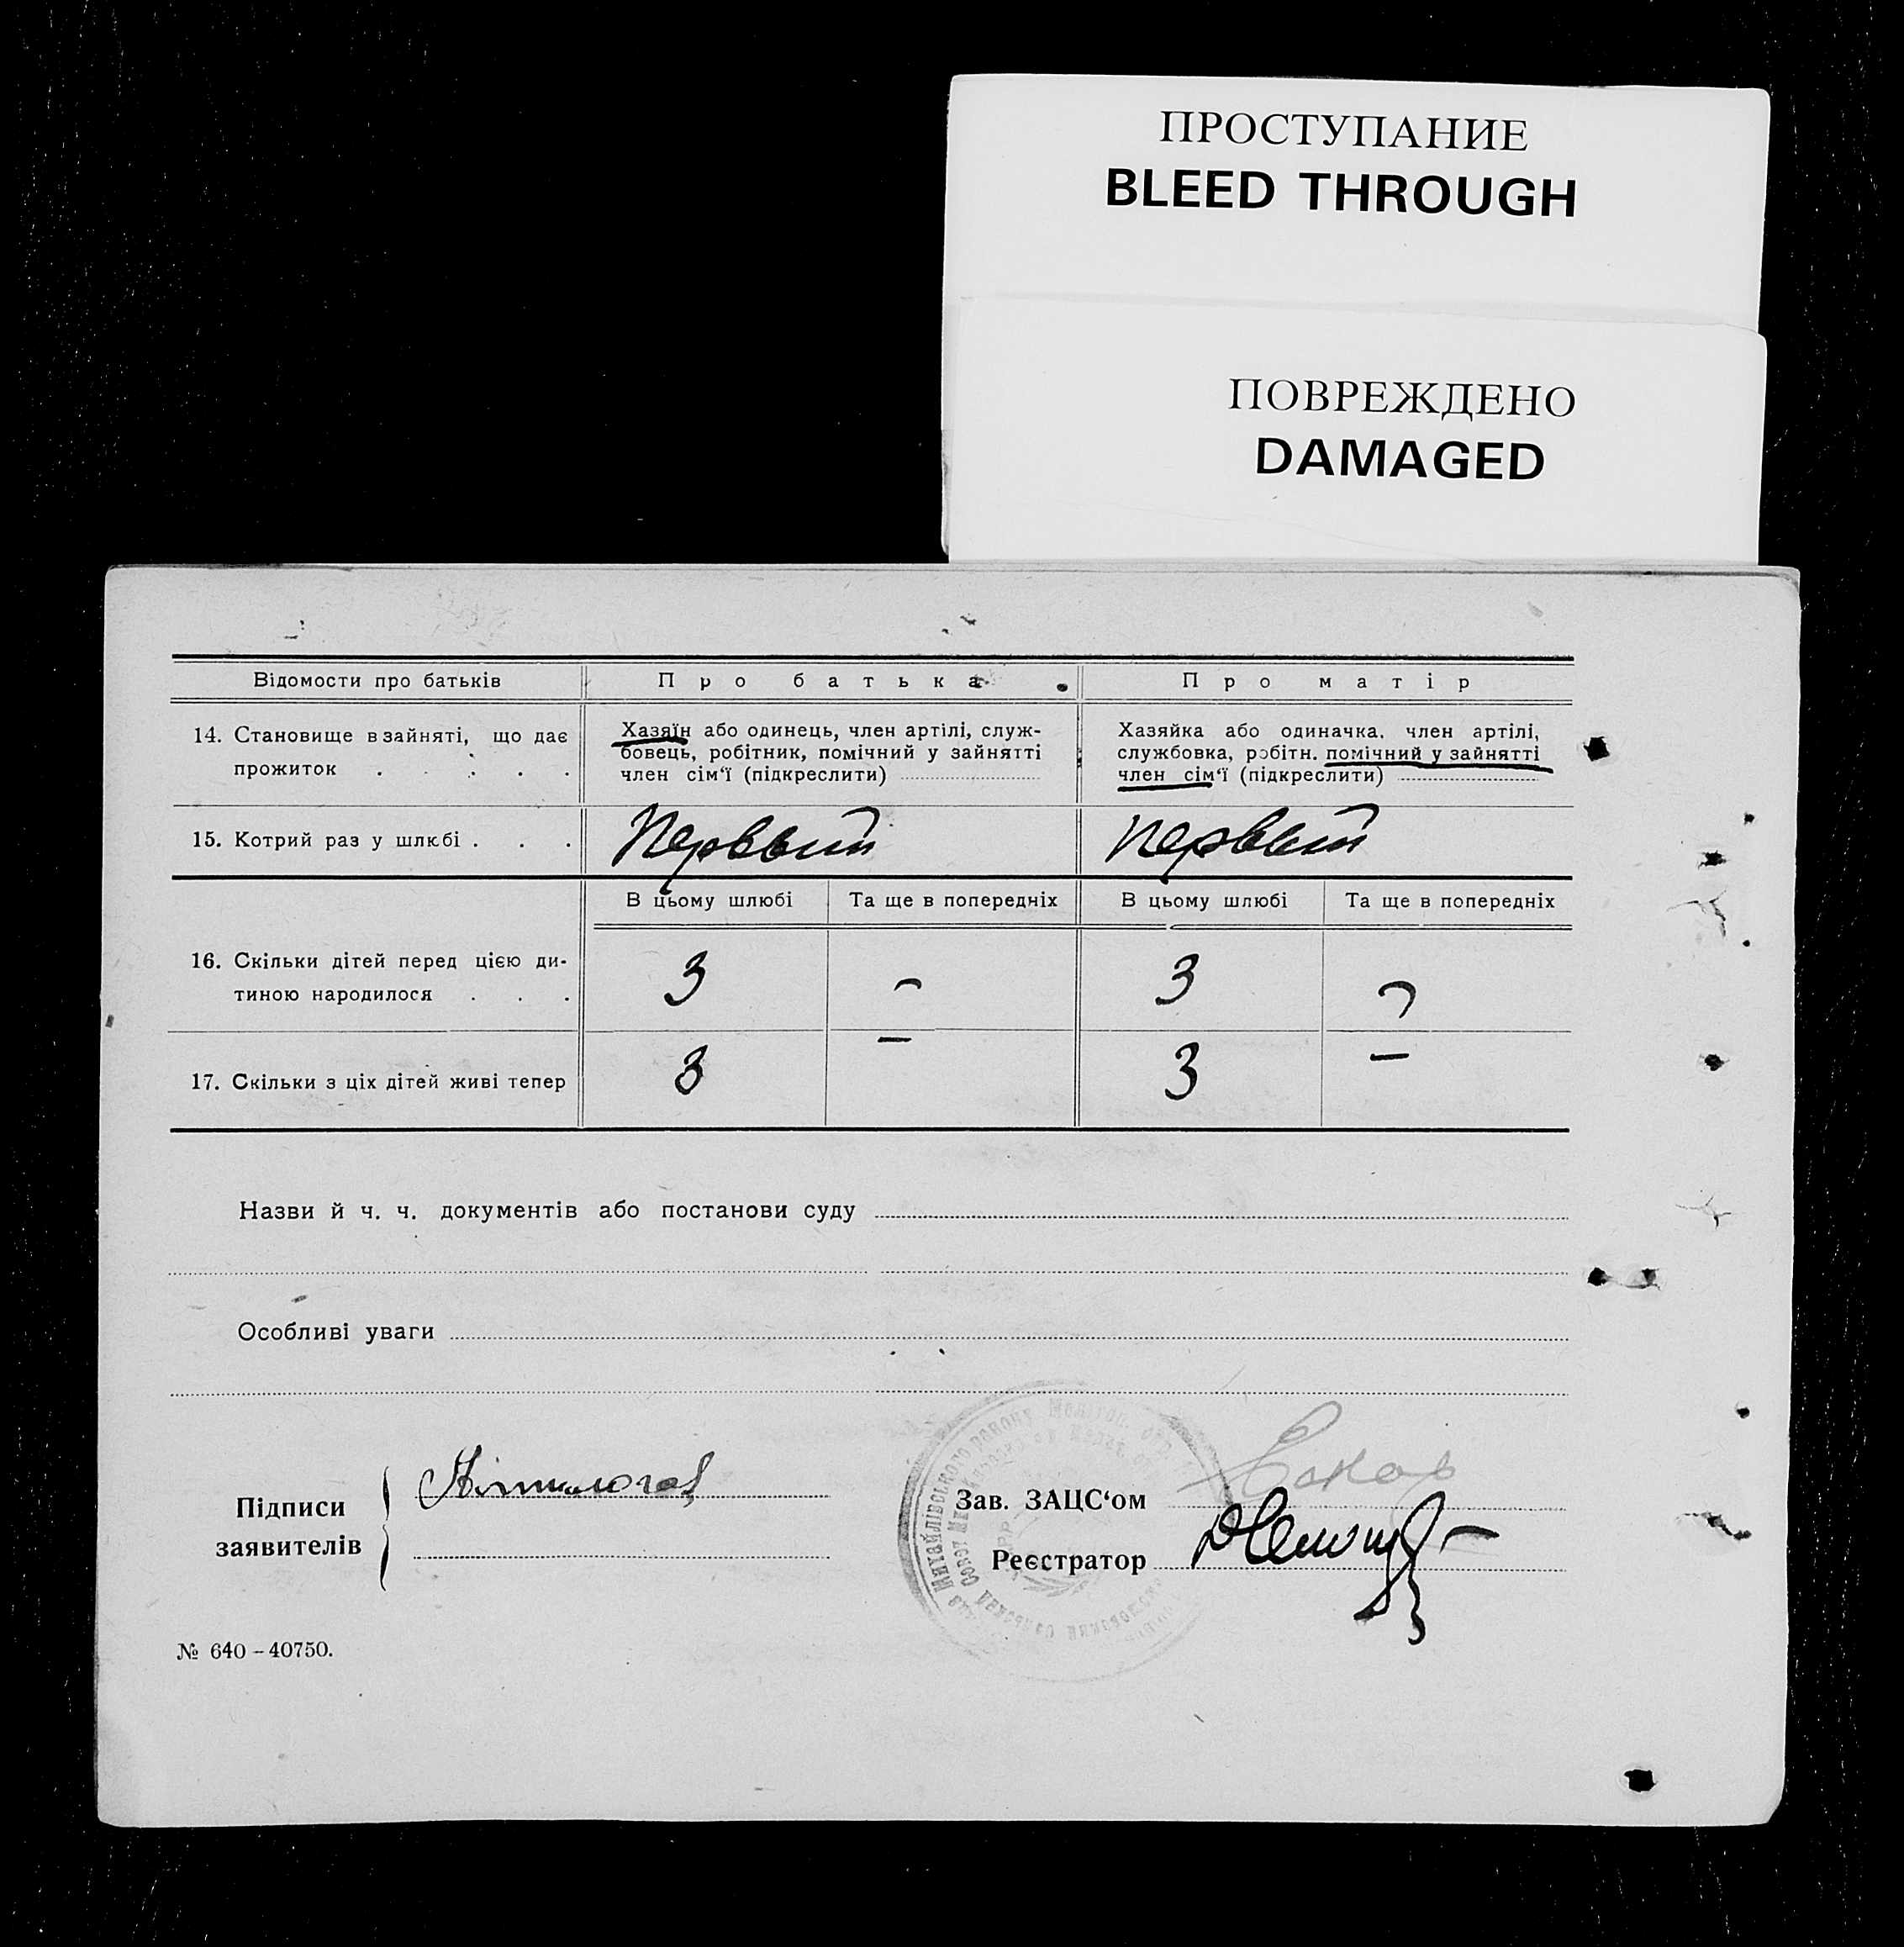 ПРОСТУПАНИЕ
BLEED THROUGH
ПОВРЕЖДЕНО
DAMAGED
Відомости про батьків Про батька Про матір
14. Становище в зайняті, що дає
прожиток . . . . .
Хазяїн або одинець, член артілі, служ-
бовець, робітник, помічний у зайнятті
член сім'ї (підкреслити)
Хазяйка або одиначка, член артілі,
службовка, робітн. помічний у зайнятті
член сім'ї (підкреслити)
15. Котрий раз у шлюбі . . . Первый Первый
В цьому шлюбі Та ще в попередніх В цьому шлюбі Та ще в попередніх
16. Скільки дітей перед цією ди-
тиною народилося . . . 3 – 3 –
17. Скільки з ціх дітей живі тепер 3 – 3 –
Назви й ч. ч. документів або постанови суду
Особливі уваги
Підписи
заявителів
Зав. ЗАЦС'ом
Реєстратор
Михайлівського району
№ 640 – 40750.